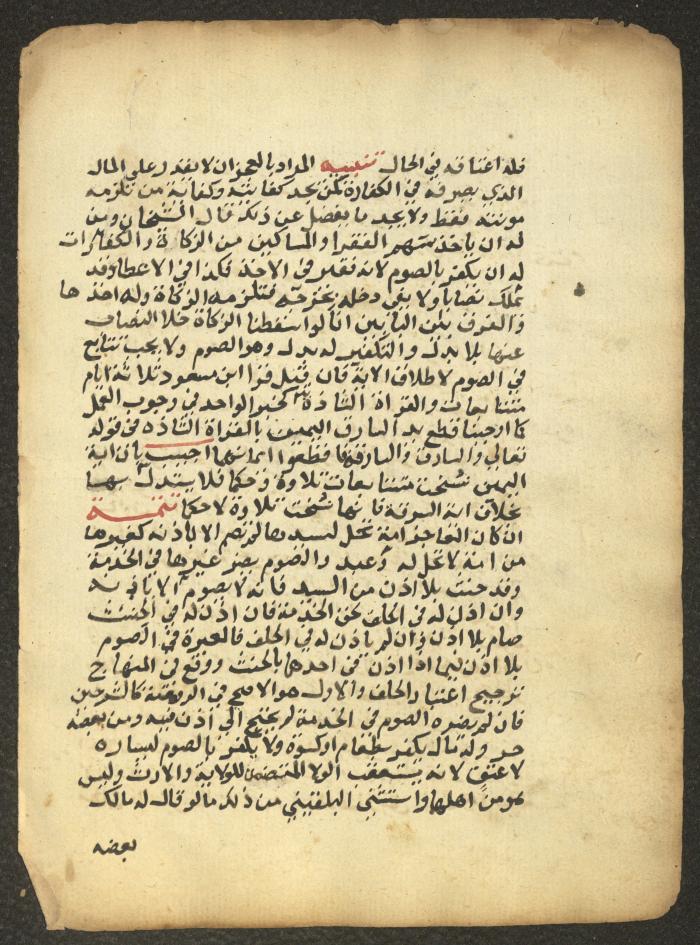 فله اعتاقه في الحال تنبيه المراد بالعجز ان لا يقدر على المال
الذي يصرفه في الكفارة كمن يجد كفايته وكفاية من تلزمه
مونته فقط ولا يجد ما يفضل عن ذلك قال الشيخان ومن
له ان ياخذ سهم الفقرا والمساكين من الزكاة والكفارات
له ان يكفر بالصوم لانه فقير في الاخذ فكذا في الاعطا وقد
يملك نصابا ولا يفي دخله بخرجه فتلزمه الزكاة وله اخذها
والفرق بين البابين انا لو اسقطنا الزكاة خلا النصاب
عنها بلا بدل والتكفير له بدل وهو الصوم ولا يجب تتابع
في الصوم لاطلاق الاية فان قيل قرا ابن مسعود ثلاثة ايام
متتابعات والقراة الشاذة كخبر الواحد في وجوب العمل
كما اوجبنا قطع يد السارق اليمين بالقراة الشاذه في قوله
تعالى والسارق والسارقة فاقطعوا ايمانهما اجيب بان اية
اليمين نسخت متتابعات تلاوة وحكما فلا يستدل بها
بخلاف اية السرقة فانها نسخت تلاوة لا حكما تتمة
ان كان العاجز امة تحل لسيدها لم تصم الا باذنه كغيرها
من امة لا تحل له وعبد والصوم يضر غيرها في الخدمة
وقد حنث بلا اذن من السيد فانه لا يصوم الا باذنه
وان اذن له في الحلف لحق الخدمة فان اذن له في الحنث
صام بلا اذن وان لم ياذن له في الحلف فالعبرة في الصوم
بلا اذن فيما اذا اذن في احدهما بالحنث ووقع في المنهاج
ترجيح اعتبار الحلف والاول هو الاصح في الروضة كالشرحين
فان لم يضره الصوم في الخدمة لم يحتج الى اذن فيه ومن بعضه
حر وله مال يكفر بطعام او كسوة ولا يكفر بالصوم ليساره
لا عتق لانه يستعقب الولا المتضمن للولاية والارث وليس
هو من اهلها واستثنى البلقيني من ذلك ما لو قال له مالك
بعضه